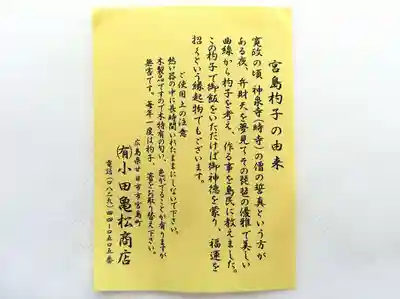 宮島杓子の由来
寛政の頃 神泉寺(時寺)の僧の誓真という方が
ある夜、弁財天を夢見てその琵琶の優雅で美しい
曲線から杓子を考え、作る事を島民に教えました。
この杓子で御飯をいただけば御神徳を蒙り、福運を
招くという縁起物でもございます。
ご使用上の注意
熱い器の中に長時間いれたままにしないで下さい。
木製品ですので木特有の匂い、色がでることが有りますが
無害です。毎年一度は杓子、箸をお取り替え下さい。
広島県廿日市市宮島町
(有)小田亀松商店
電話(〇八二九)四四-〇五〇五番